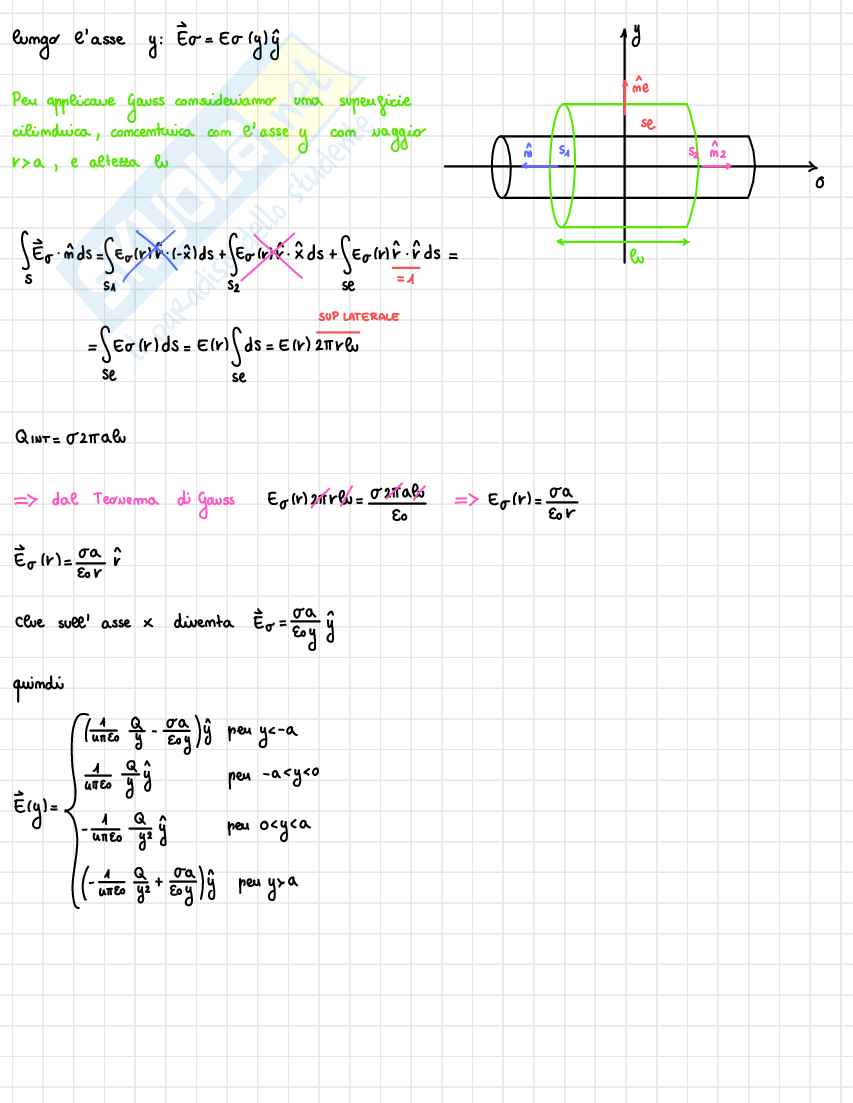 lungo l'asse y: E⃗σ = Eσ(y)ŷ
Per applicare Gauss consideriamo una superficie
cilindrica, concentrica con l'asse y con raggio
r>a, e altezza h
∫S E⃗σ · n̂ ds = ∫S1 Eσ(r) r̂ · (-x̂) ds + ∫S2 Eσ(r) r̂ · x̂ ds + ∫Se Eσ(r) r̂ · r̂ ds =
= 1
SUP LATERALE
= ∫Se Eσ(r) ds = E(r) ∫Se ds = E(r) 2πrh
QINT = σ2πah
=> dal Teorema di Gauss Eσ(r) 2πrh = σ2πah/ε0 => Eσ(r) = σa/ε0r
E⃗σ(r) = σa/ε0r r̂
che sull' asse x diventa E⃗σ = σa/ε0y ŷ
quindi
E⃗(y) = {
(1/4πε0 Q/y - σa/ε0y) ŷ per y<-a
1/4πε0 Q/y ŷ per -a<y<0
-1/4πε0 Q/y² ŷ per 0<y<a
(-1/4πε0 Q/y² + σa/ε0y) ŷ per y>a
y
n̂e
Se
n̂ S1 S2 n̂2
O
h
SKUOLA.net
il paradiso dello studente